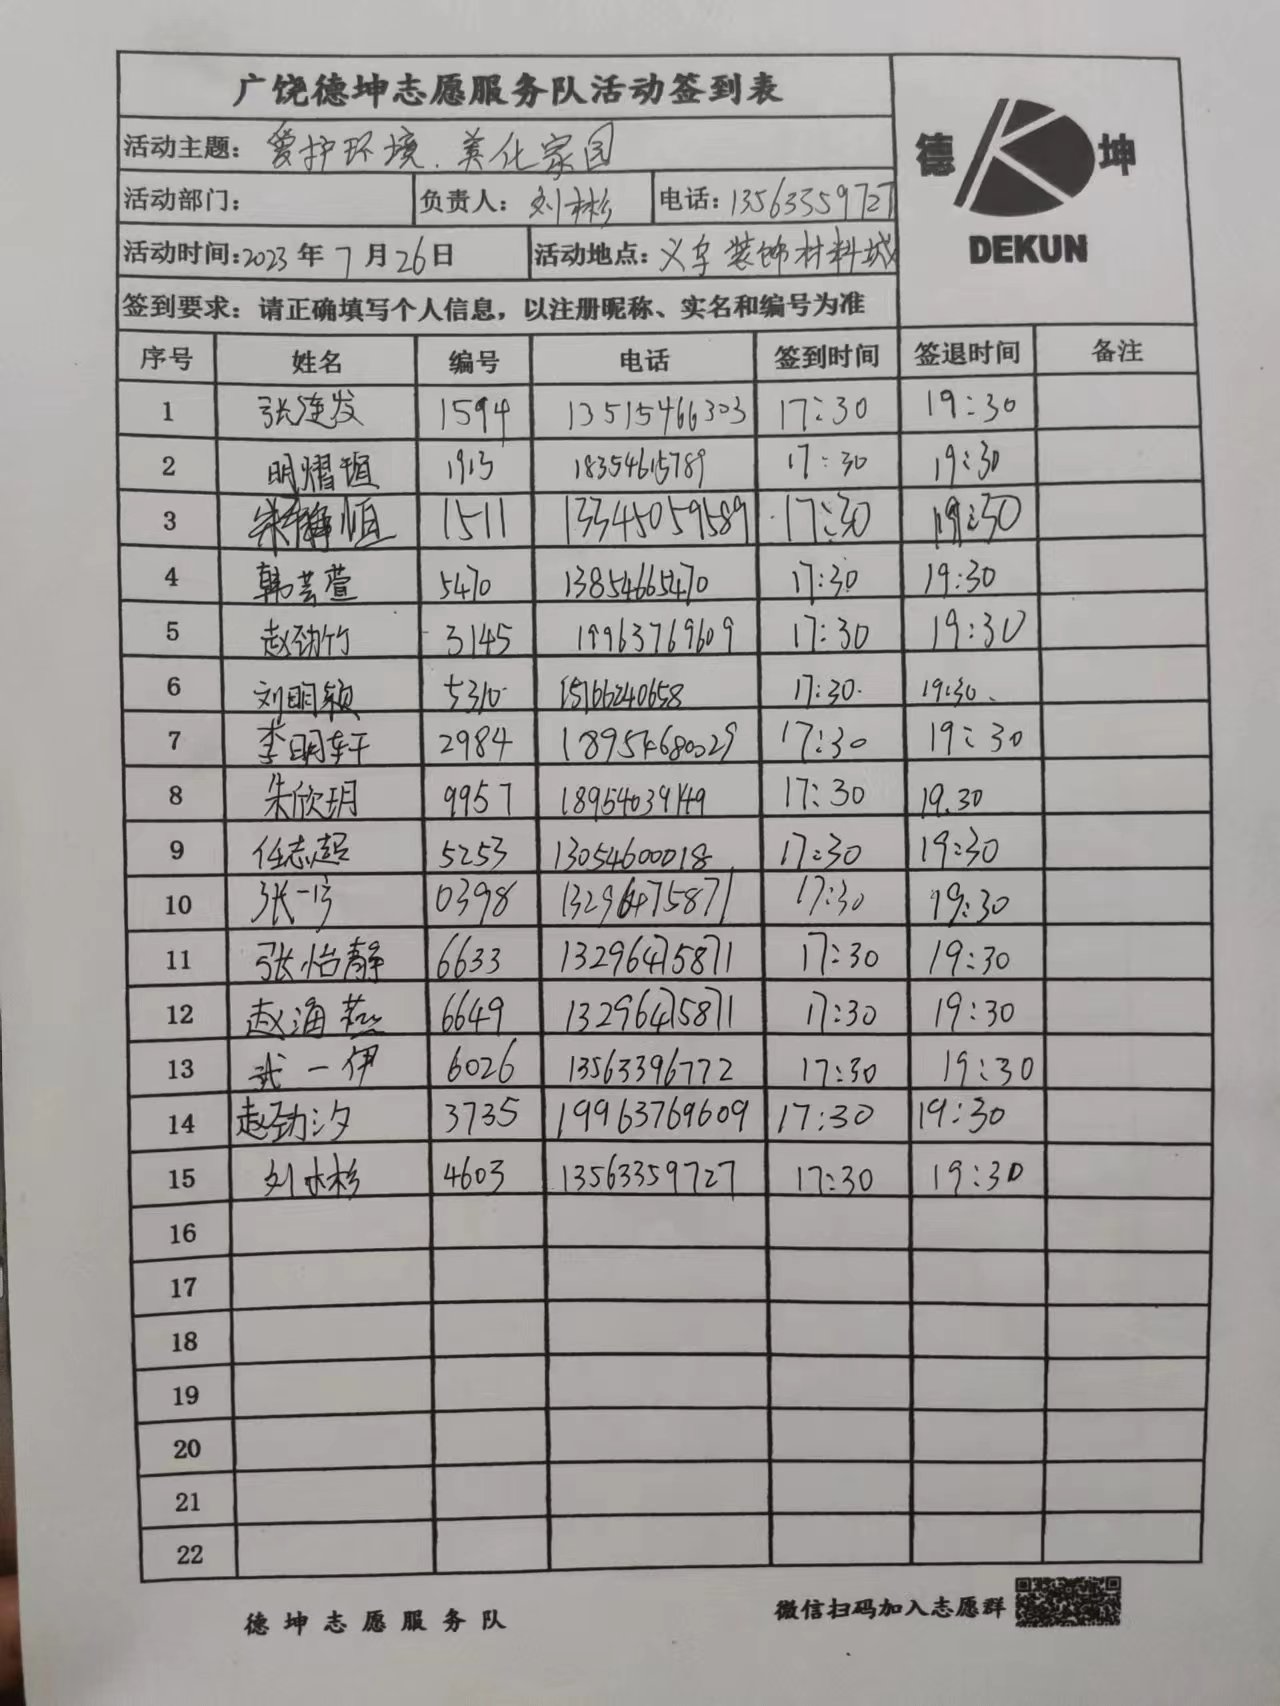 广饶德坤志愿服务队活动签到表
德 坤
DEKUN
活动主题：爱护环境.美化家园
活动部门： 负责人：刘林杉 电话：13563359727
活动时间：2023年7月26日 活动地点：义乌装饰材料城
签到要求：请正确填写个人信息，以注册昵称、实名和编号为准
序号 姓名 编号 电话 签到时间 签退时间 备注
1 张连发 1594 13515466303 17:30 19:30
2 明熠恒 1913 18354615789 17:30 19:30
3 1511 13345059589 17:30 19:30
4 韩芸萱 5470 13854665470 17:30 19:30
5 赵劲竹 3145 19963769609 17:30 19:30
6 刘明颖 5310 15166240658 17:30 19:30
7 李明轩 2984 18954680029 17:30 19:30
8 朱欣玥 9957 18954039149 17:30 19.30
9 任志超 5253 13054600018 17:30 19:30
10 张一 0398 13296475871 17:30 19:30
11 张怡静 6633 13296475871 17:30 19:30
12 赵海燕 6649 13296475871 17:30 19:30
13 武一伊 6026 13563396772 17:30 19:30
14 赵劲汐 3735 19963769609 17:30 19:30
15 刘林杉 4603 13563359727 17:30 19:30
16
17
18
19
20
21
22
德坤志愿服务队 微信扫码加入志愿群